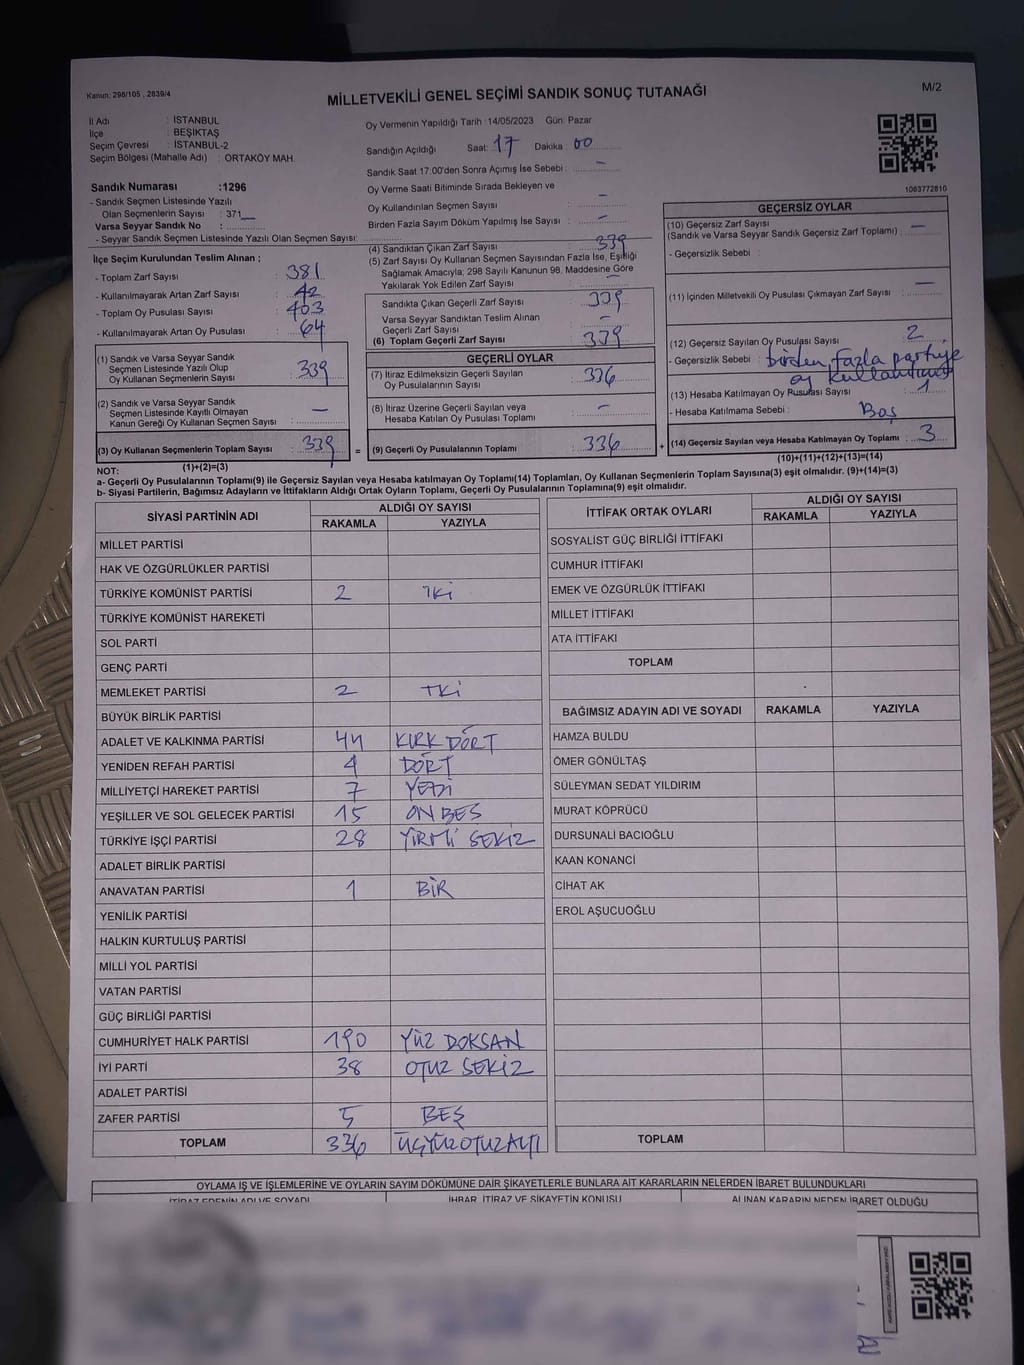 Kanun: 298/105 , 2839/4
MİLLETVEKİLİ GENEL SEÇİMİ SANDIK SONUÇ TUTANAĞI
M/2
İl Adı : İSTANBUL
İlçe : BEŞİKTAŞ
Seçim Çevresi : İSTANBUL-2
Seçim Bölgesi (Mahalle Adı) : ORTAKÖY MAH.
Sandık Numarası :1296
- Sandık Seçmen Listesinde Yazılı
Olan Seçmenlerin Sayısı : 371
Varsa Seyyar Sandık No :
- Seyyar Sandık Seçmen Listesinde Yazılı Olan Seçmen Sayısı:
İlçe Seçim Kurulundan Teslim Alınan ;
- Toplam Zarf Sayısı : 381
- Kullanılmayarak Artan Zarf Sayısı : 42
- Toplam Oy Pusulası Sayısı : 403
- Kullanılmayarak Artan Oy Pusulası : 64
(1) Sandık ve Varsa Seyyar Sandık
Seçmen Listesinde Yazılı Olup
Oy Kullanan Seçmenlerin Sayısı : 339
(2) Sandık ve Varsa Seyyar Sandık
Seçmen Listesinde Kayıtlı Olmayan
Kanun Gereği Oy Kullanan Seçmen Sayısı : –
(3) Oy Kullanan Seçmenlerin Toplam Sayısı : 339
(1)+(2)=(3)
Oy Vermenin Yapıldığı Tarih :14/05/2023 Gün: Pazar
Sandığın Açıldığı Saat: 17 Dakika 00
Sandık Saat 17:00'den Sonra Açımış İse Sebebi : –
Oy Verme Saati Bitiminde Sırada Bekleyen ve
Oy Kullandırılan Seçmen Sayısı : –
Birden Fazla Sayım Döküm Yapılmış İse Sayısı : –
(4) Sandıktan Çıkan Zarf Sayısı : 339
(5) Zarf Sayısı Oy Kullanan Seçmen Sayısından Fazla İse, Eşitliği
Sağlamak Amacıyla; 298 Sayılı Kanunun 98. Maddesine Göre
Yakılarak Yok Edilen Zarf Sayısı : –
Sandıkta Çıkan Geçerli Zarf Sayısı : 339
Varsa Seyyar Sandıktan Teslim Alınan
Geçerli Zarf Sayısı : –
(6) Toplam Geçerli Zarf Sayısı : 339
GEÇERLİ OYLAR
(7) İtiraz Edilmeksizin Geçerli Sayılan
Oy Pusulalarının Sayısı : 336
(8) İtiraz Üzerine Geçerli Sayılan veya
Hesaba Katılan Oy Pusulası Toplamı : –
= (9) Geçerli Oy Pusulalarının Toplamı : 336 +
1063772810
GEÇERSİZ OYLAR
(10) Geçersiz Zarf Sayısı
(Sandık ve Varsa Seyyar Sandık Geçersiz Zarf Toplamı) : –
- Geçersizlik Sebebi :
(11) İçinden Milletvekili Oy Pusulası Çıkmayan Zarf Sayısı : –
(12) Geçersiz Sayılan Oy Pusulası Sayısı : 2
- Geçersizlik Sebebi : birden fazla partiye
oy kullanılması
(13) Hesaba Katılmayan Oy Pusulası Sayısı : 1
- Hesaba Katılmama Sebebi : Boş
(14) Geçersiz Sayılan veya Hesaba Katılmayan Oy Toplamı : 3
(10)+(11)+(12)+(13)=(14)
NOT:
a- Geçerli Oy Pusulalarının Toplamı(9) ile Geçersiz Sayılan veya Hesaba katılmayan Oy Toplamı(14) Toplamları, Oy Kullanan Seçmenlerin Toplam Sayısına(3) eşit olmalıdır. (9)+(14)=(3)
b- Siyasi Partilerin, Bağımsız Adayların ve İttifakların Aldığı Ortak Oyların Toplamı, Geçerli Oy Pusulalarının Toplamına(9) eşit olmalıdır.
SİYASİ PARTİNİN ADI ALDIĞI OY SAYISI
RAKAMLA YAZIYLA
MİLLET PARTİSİ
HAK VE ÖZGÜRLÜKLER PARTİSİ
TÜRKİYE KOMÜNİST PARTİSİ 2 İKİ
TÜRKİYE KOMÜNİST HAREKETİ
SOL PARTİ
GENÇ PARTİ
MEMLEKET PARTİSİ 2 İKİ
BÜYÜK BİRLİK PARTİSİ
ADALET VE KALKINMA PARTİSİ 44 KIRK DÖRT
YENİDEN REFAH PARTİSİ 4 DÖRT
MİLLİYETÇİ HAREKET PARTİSİ 7 YEDİ
YEŞİLLER VE SOL GELECEK PARTİSİ 15 ON BEŞ
TÜRKİYE İŞÇİ PARTİSİ 28 YİRMİ SEKİZ
ADALET BİRLİK PARTİSİ
ANAVATAN PARTİSİ 1 BİR
YENİLİK PARTİSİ
HALKIN KURTULUŞ PARTİSİ
MİLLİ YOL PARTİSİ
VATAN PARTİSİ
GÜÇ BİRLİĞİ PARTİSİ
CUMHURİYET HALK PARTİSİ 190 YÜZ DOKSAN
İYİ PARTİ 38 OTUZ SEKİZ
ADALET PARTİSİ
ZAFER PARTİSİ 5 BEŞ
TOPLAM 336 ÜÇYÜZOTUZALTI
İTTİFAK ORTAK OYLARI ALDIĞI OY SAYISI
RAKAMLA YAZIYLA
SOSYALİST GÜÇ BİRLİĞİ İTTİFAKI
CUMHUR İTTİFAKI
EMEK VE ÖZGÜRLÜK İTTİFAKI
MİLLET İTTİFAKI
ATA İTTİFAKI
TOPLAM
BAĞIMSIZ ADAYIN ADI VE SOYADI RAKAMLA YAZIYLA
HAMZA BULDU
ÖMER GÖNÜLTAŞ
SÜLEYMAN SEDAT YILDIRIM
MURAT KÖPRÜCÜ
DURSUNALİ BACIOĞLU
KAAN KONANCİ
CİHAT AK
EROL AŞUCUOĞLU
TOPLAM
OYLAMA İŞ VE İŞLEMLERİNE VE OYLARIN SAYIM DÖKÜMÜNE DAİR ŞİKAYETLERLE BUNLARA AİT KARARLARIN NELERDEN İBARET BULUNDUKLARI
İTİRAZ EDENİN ADI VE SOYADI İHBAR, İTİRAZ VE ŞİKAYETİN KONUSU ALINAN KARARIN NEDEN İBARET OLDUĞU